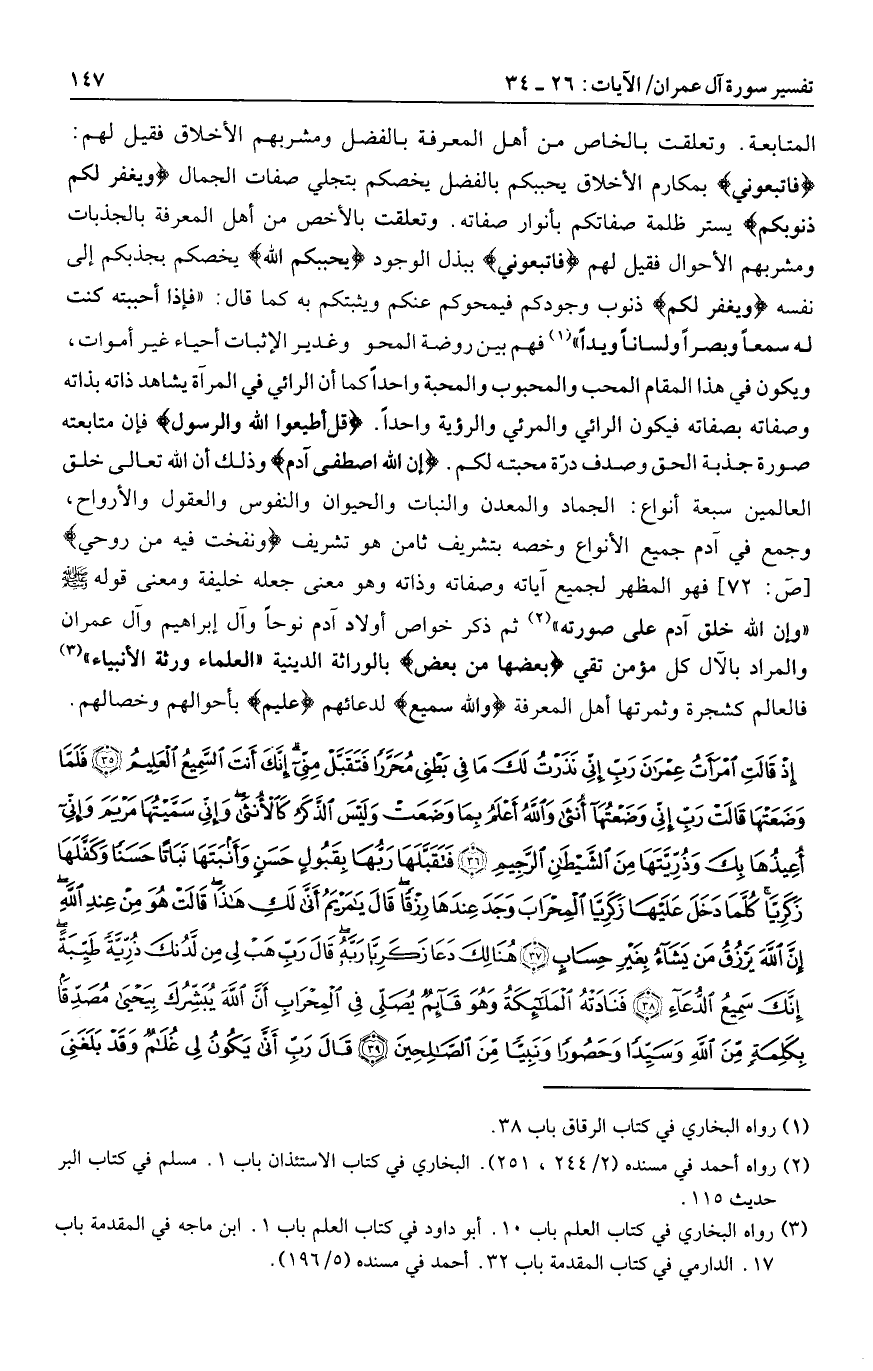 تفسير سورة آل عمران/ الآيات: ٢٦ ـ ٣٤
١٤٧
المتابعة. وتعلقت بالخاص من أهل المعرفة بالفضل ومشربهم الأخلاق فقيل لهم:
﴿فاتبعوني﴾ بمكارم الأخلاق يحببكم بالفضل يخصكم بتجلي صفات الجمال ﴿ويغفر لكم
ذنوبكم﴾ يستر ظلمة صفاتكم بأنوار صفاته. وتعلقت بالأخص من أهل المعرفة بالجذبات
ومشربهم الأحوال فقيل لهم ﴿فاتبعوني﴾ ببذل الوجود ﴿يحببكم الله﴾ يخصكم بجذبكم إلى
نفسه ﴿ويغفر لكم﴾ ذنوب وجودكم فيمحوكم عنكم ويثبتكم به كما قال: «فإذا أحببته كنت
له سمعاً وبصراً ولساناً ويداً»(١) فهم بين روضة المحو وغدير الإثبات أحياء غير أموات،
ويكون في هذا المقام المحب والمحبوب والمحبة واحداً كما أن الرائي في المرآة يشاهد ذاته بذاته
وصفاته بصفاته فيكون الرائي والمرئي والرؤية واحداً. ﴿قل أطيعوا الله والرسول﴾ فإن متابعته
صورة جذبة الحق وصدف درّة محبته لكم. ﴿إن الله اصطفى آدم﴾ وذلك أن الله تعالى خلق
العالمين سبعة أنواع: الجماد والمعدن والنبات والحيوان والنفوس والعقول والأرواح،
وجمع في آدم جميع الأنواع وخصه بتشريف ثامن هو تشريف ﴿ونفخت فيه من روحي﴾
[صۤ: ٧٢] فهو المظهر لجميع آياته وصفاته وذاته وهو معنى جعله خليفة ومعنى قوله ﷺ
«وإن الله خلق آدم على صورته»(٢) ثم ذكر خواص أولاد آدم نوحاً وآل إبراهيم وآل عمران
والمراد بالآل كل مؤمن تقي ﴿بعضها من بعض﴾ بالوراثة الدينية «العلماء ورثة الأنبياء»(٣)
فالعالم كشجرة وثمرتها أهل المعرفة ﴿والله سميع﴾ لدعائهم ﴿عليم﴾ بأحوالهم وخصالهم.
إِذْ قَالَتِ ٱمْرَأَتُ عِمْرَٰنَ رَبِّ إِنِّي نَذَرْتُ لَكَ مَا فِي بَطْنِي مُحَرَّرًا فَتَقَبَّلْ مِنِّيٓ ۖ إِنَّكَ أَنتَ ٱلسَّمِيعُ ٱلْعَلِيمُ ۝٣٥ فَلَمَّا
وَضَعَتْهَا قَالَتْ رَبِّ إِنِّي وَضَعْتُهَآ أُنثَىٰ وَٱللَّهُ أَعْلَمُ بِمَا وَضَعَتْ وَلَيْسَ ٱلذَّكَرُ كَٱلْأُنثَىٰ ۖ وَإِنِّي سَمَّيْتُهَا مَرْيَمَ وَإِنِّيٓ
أُعِيذُهَا بِكَ وَذُرِّيَّتَهَا مِنَ ٱلشَّيْطَٰنِ ٱلرَّجِيمِ ۝٣٦ فَتَقَبَّلَهَا رَبُّهَا بِقَبُولٍ حَسَنٍ وَأَنۢبَتَهَا نَبَاتًا حَسَنًا وَكَفَّلَهَا
زَكَرِيَّا ۖ كُلَّمَا دَخَلَ عَلَيْهَا زَكَرِيَّا ٱلْمِحْرَابَ وَجَدَ عِندَهَا رِزْقًا ۖ قَالَ يَٰمَرْيَمُ أَنَّىٰ لَكِ هَٰذَا ۖ قَالَتْ هُوَ مِنْ عِندِ ٱللَّهِ ۖ
إِنَّ ٱللَّهَ يَرْزُقُ مَن يَشَآءُ بِغَيْرِ حِسَابٍ ۝٣٧ هُنَالِكَ دَعَا زَكَرِيَّا رَبَّهُ ۖ قَالَ رَبِّ هَبْ لِي مِن لَّدُنكَ ذُرِّيَّةً طَيِّبَةً ۖ
إِنَّكَ سَمِيعُ ٱلدُّعَآءِ ۝٣٨ فَنَادَتْهُ ٱلْمَلَٰٓئِكَةُ وَهُوَ قَآئِمٌ يُصَلِّي فِي ٱلْمِحْرَابِ أَنَّ ٱللَّهَ يُبَشِّرُكَ بِيَحْيَىٰ مُصَدِّقًۢا
بِكَلِمَةٍ مِّنَ ٱللَّهِ وَسَيِّدًا وَحَصُورًا وَنَبِيًّا مِّنَ ٱلصَّٰلِحِينَ ۝٣٩ قَالَ رَبِّ أَنَّىٰ يَكُونُ لِي غُلَٰمٌ وَقَدْ بَلَغَنِيَ
(١) رواه البخاري في كتاب الرقاق باب ٣٨.
(٢) رواه أحمد في مسنده (٢/ ٢٤٤ ، ٢٥١). البخاري في كتاب الاستئذان باب ١. مسلم في كتاب البر
حديث ١١٥.
(٣) رواه البخاري في كتاب العلم باب ١٠. أبو داود في كتاب العلم باب ١. ابن ماجه في المقدمة باب
١٧. الدارمي في كتاب المقدمة باب ٣٢. أحمد في مسنده (٥/ ١٩٦).